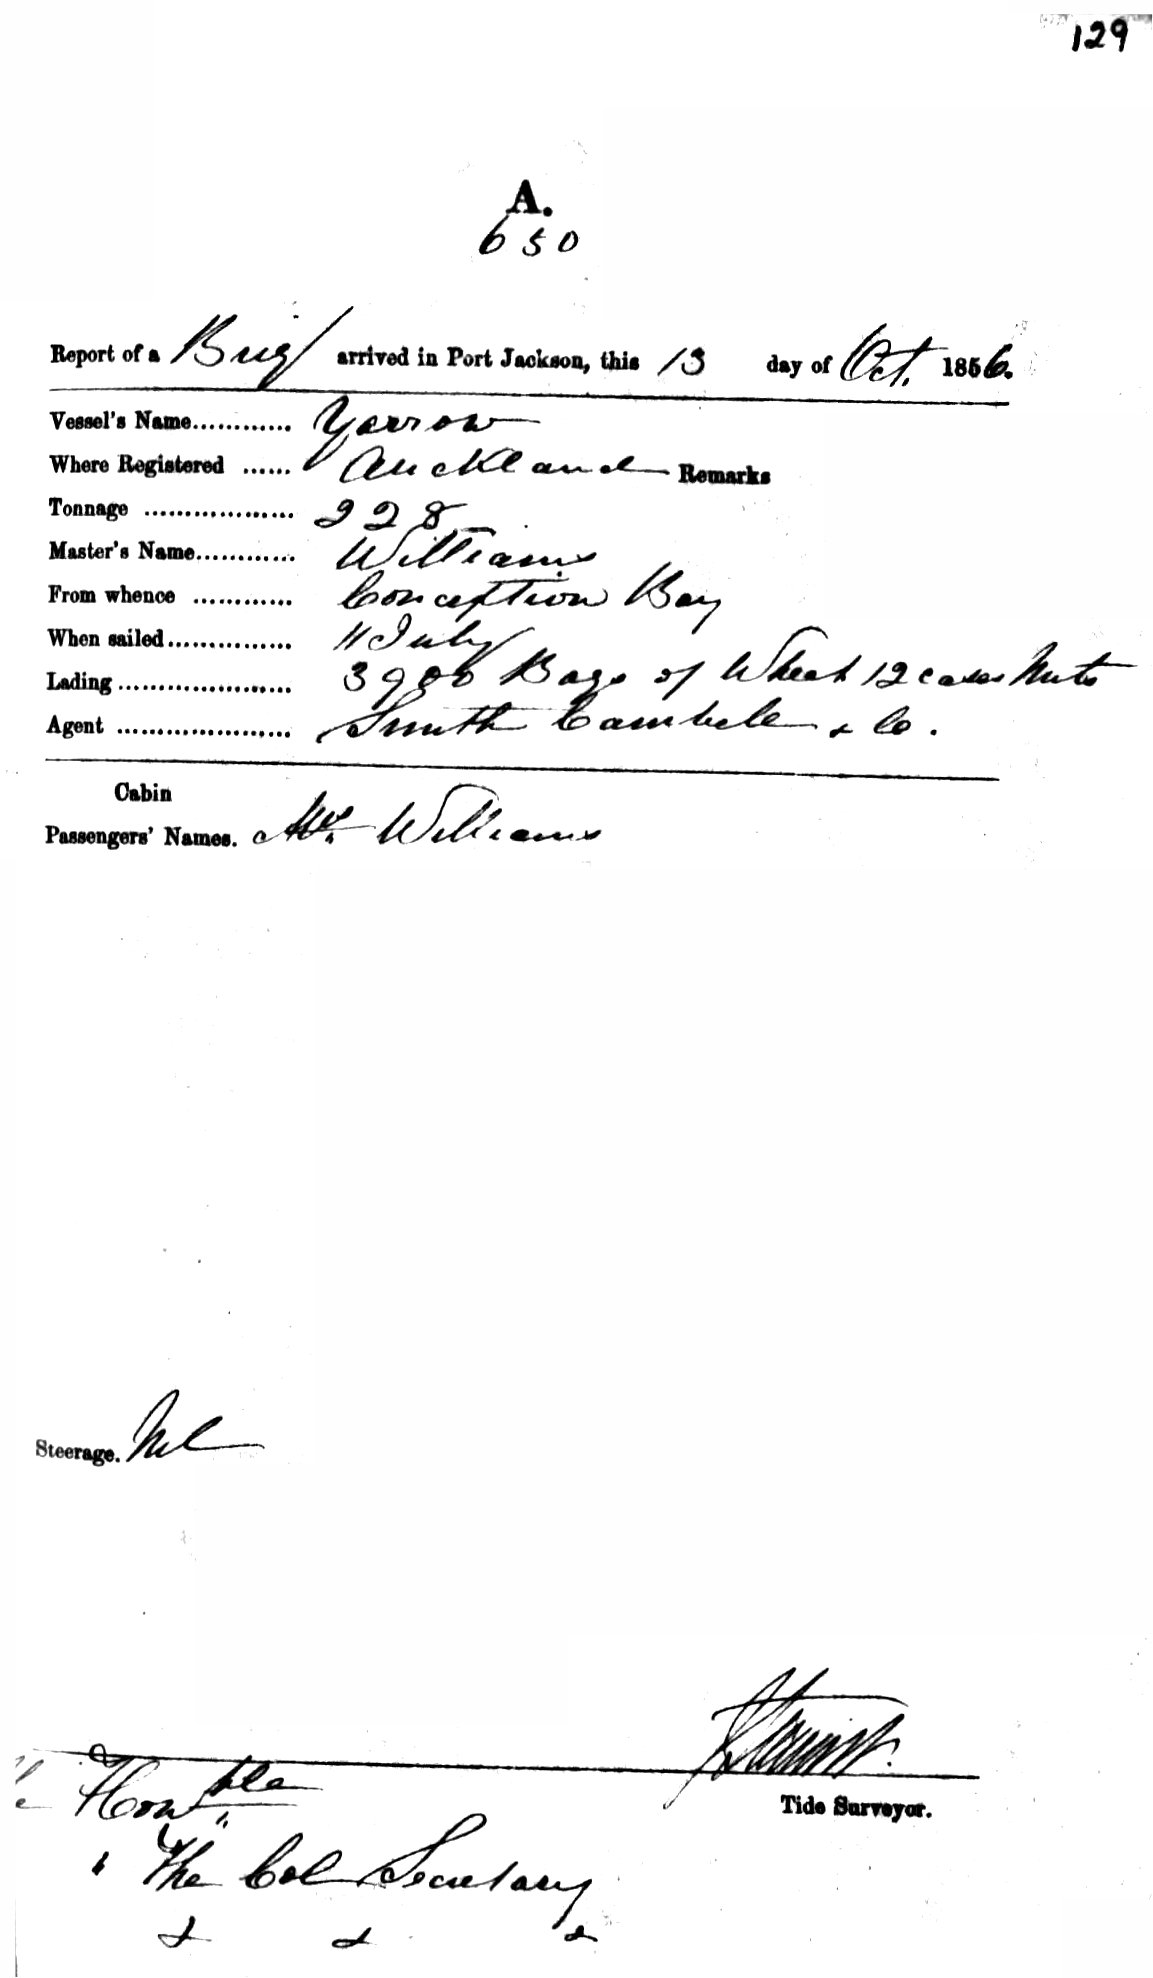 129
A.
650
Report of a Brig arrived in Port Jackson, this 13 day of Oct. 1856.
Vessel's Name............ Yarrow
Where Registered ...... Auckland Remarks
Tonnage .................. 228
Master's Name............ Williams
From whence ............ Conception Bay
When sailed................ 11 July
Lading...................... 3900 Bags of Wheat 12 cases Nuts
Agent ...................... Smith Cambele & Co.
Cabin
Passengers' Names. Mrs. Williams
Steerage. Nil
Tide Surveyor.
Honble
" The Col Secretary
& & &